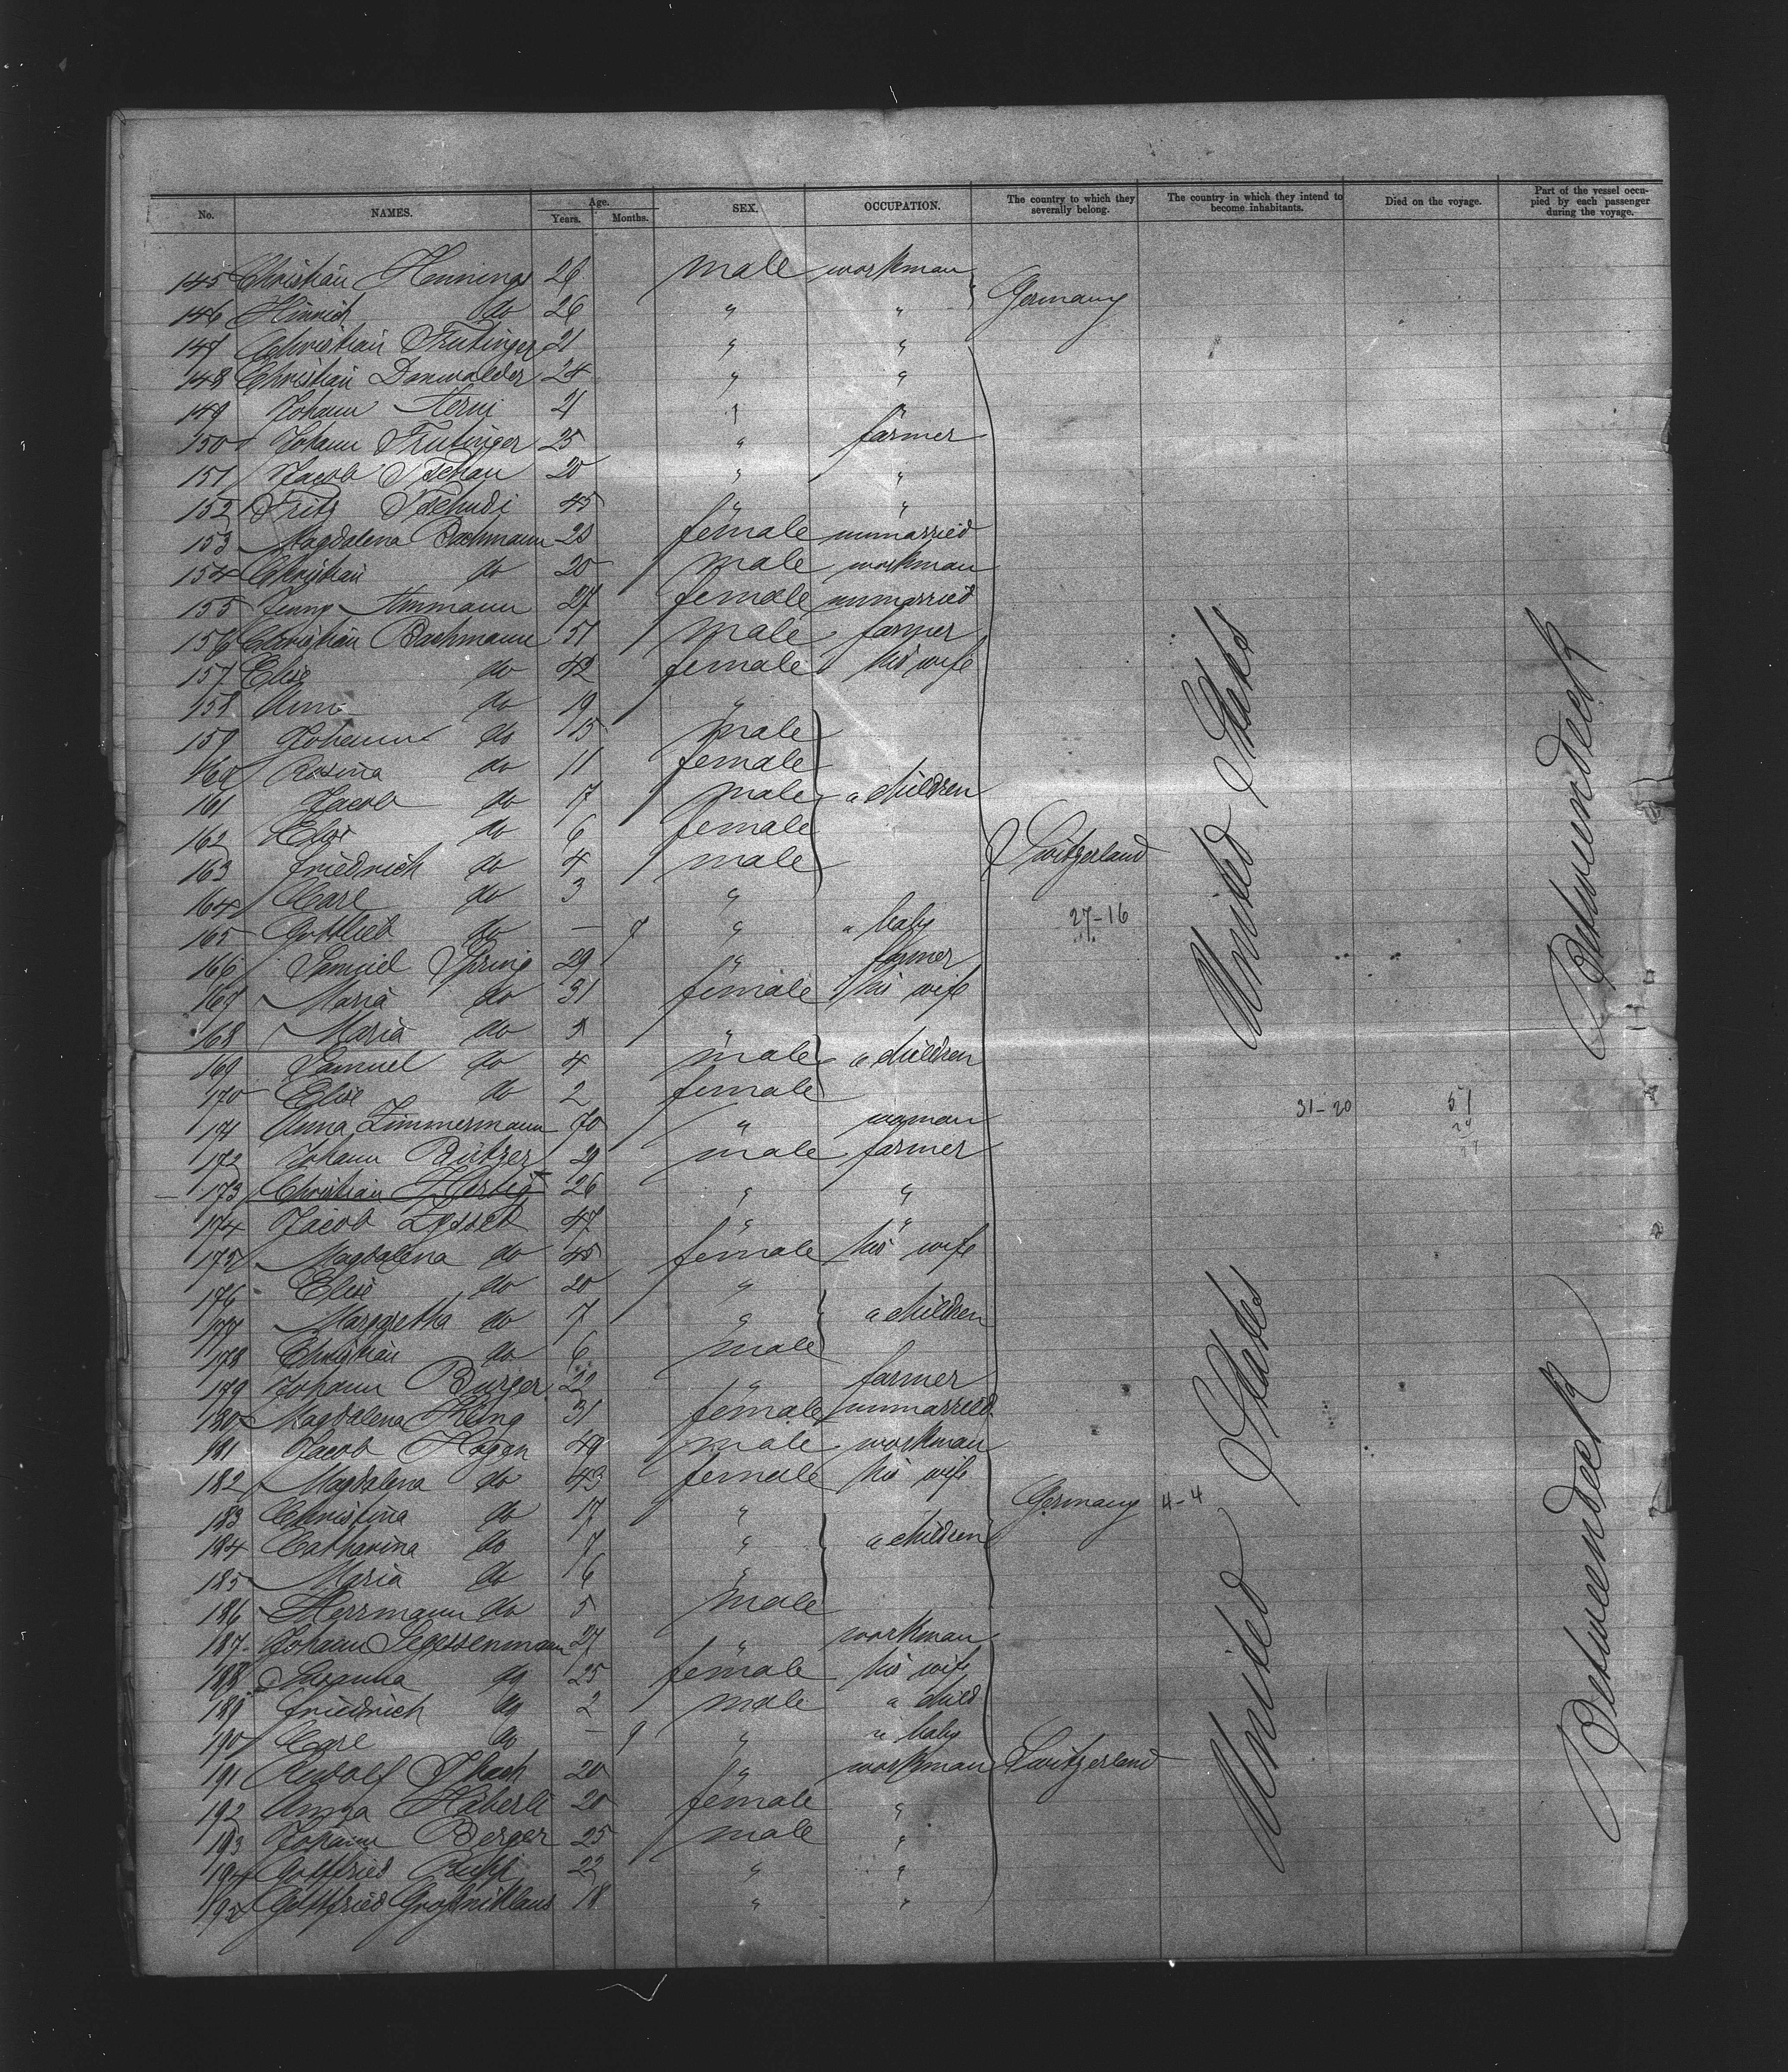 No. NAMES. Age. Years. Months. SEX. OCCUPATION. The country to which they severally belong. The country in which they intend to become inhabitants. Died on the voyage. Part of the vessel occupied by each passenger during the voyage.
145 Christian Hennings 26 male workman
146 Hinrich do 26 " " Germany
147 Christian Frutinger 21 " "
148 Christian Donwalder 24 " "
149 Johann 21 " "
150 Johann Frutinger 25 " farmer
151 Jacob Tschan 20 " "
152 Fritz Tschudi 45 " "
153 Magdalena Bachmann 23 female unmarried
154 Christian do 20 male workman
155 Jenny Ammann 27 female unmarried
156 Christian Bachmann 51 male farmer
157 Elise do 42 female his wife
158 Anna do 19 "
159 Johann do 15 male
160 Rosina do 11 female
161 Jacob do 7 male " children
162 Elise do 6 female
163 Friedrich do 4 male Switzerland
164 Carl do 3 "
165 Gottlieb do – 9 " " baby 27-16
166 Samuel Spring 29 " farmer
167 Maria do 31 female his wife
168 Maria do 5 "
169 Samuel do 4 male " children
170 Elise do 2 female
31-20 51
171 Anna Zimmermann 70 " woman
172 Johann Bützer 29 male farmer
173 Christian Hertig 26 " "
174 Jacob 47 " "
175 Magdalena do 45 female his wife
176 Elise do 20 "
177 Margaretha do 7 " " children
178 Christian do 6 male
179 Johann Burger 22 " farmer
180 Magdalena Kling 31 female unmarried
181 Jacob Hagen 49 male workman
182 Magdalena do 43 female his wife
183 Christina do 17 " Germany 4-4
184 Catharina do 7 " " children
185 Maria do 6 "
186 Herrmann do 5 male
187 Johann Segessenmann 27 " workman
188 Susanna do 25 female his wife
189 Friedrich do 2 male a child
190 Carl do – 9 " " baby
191 Rudolf 20 " workman Switzerland
192 Anna Häberli 20 female "
193 Johann Berger 25 male "
194 Gottfried 22 " "
195 Gottfried Großniklaus 18 " "
United States
United States
Betweendeck
Betweendeck